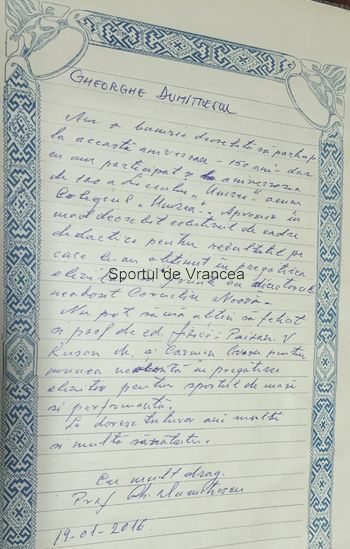 GHEORGHE DUMITRESCU
Am o bucurie deosebită să particip
la această aniversare - 150 ani - dar
eu am participat și la aniversarea
de 100 a Liceului "Unirea" acum
Colegiul "Unirea". Apreciez în
mod deosebit colectivul de cadre
didactice pentru rezultatul pe
care l-au obținut în pregătirea
elevilor în frunte cu directorul
neobosit Corneliu
Sportul de Vrancea
Nu pot să mă abțin să felicit
și prof de ed. fizică: V
și Carmen pentru
munca în pregătirea
elevilor pentru sportul de masă
și performanță.
Le doresc tuturor ani mulți
și multă sănătate.
Cu mult drag.
Prof Gh. Dumitrescu
19-01-2016